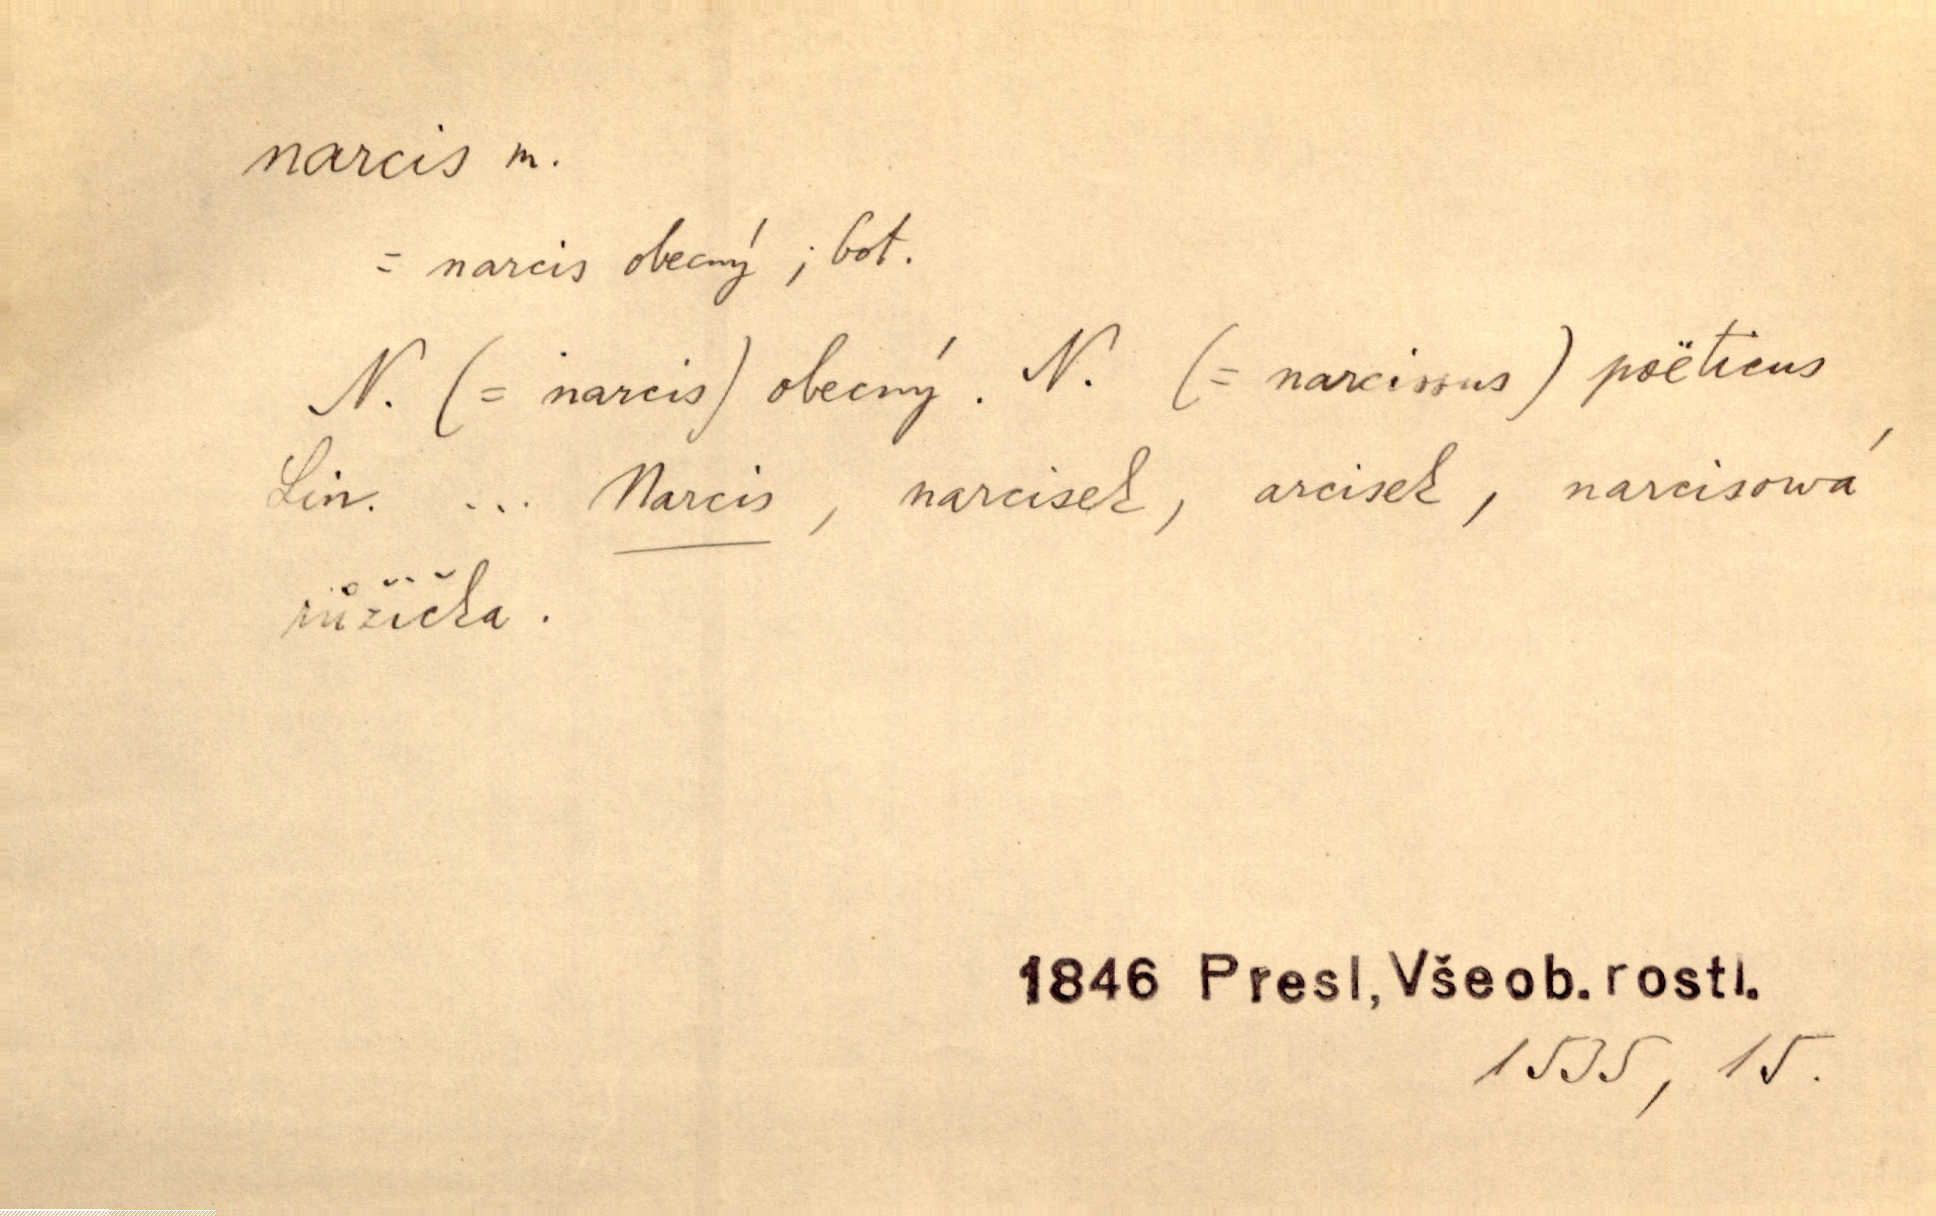 narcis m.
= narcis obecný ; bot.
N. (= narcis) obecný. N. (= narcissus) poëticus
Lin. ... Narcis, narcisek, arcisek, narcisowá
růžička.
1846 Presl, Všeob. rostl.
1535, 15.